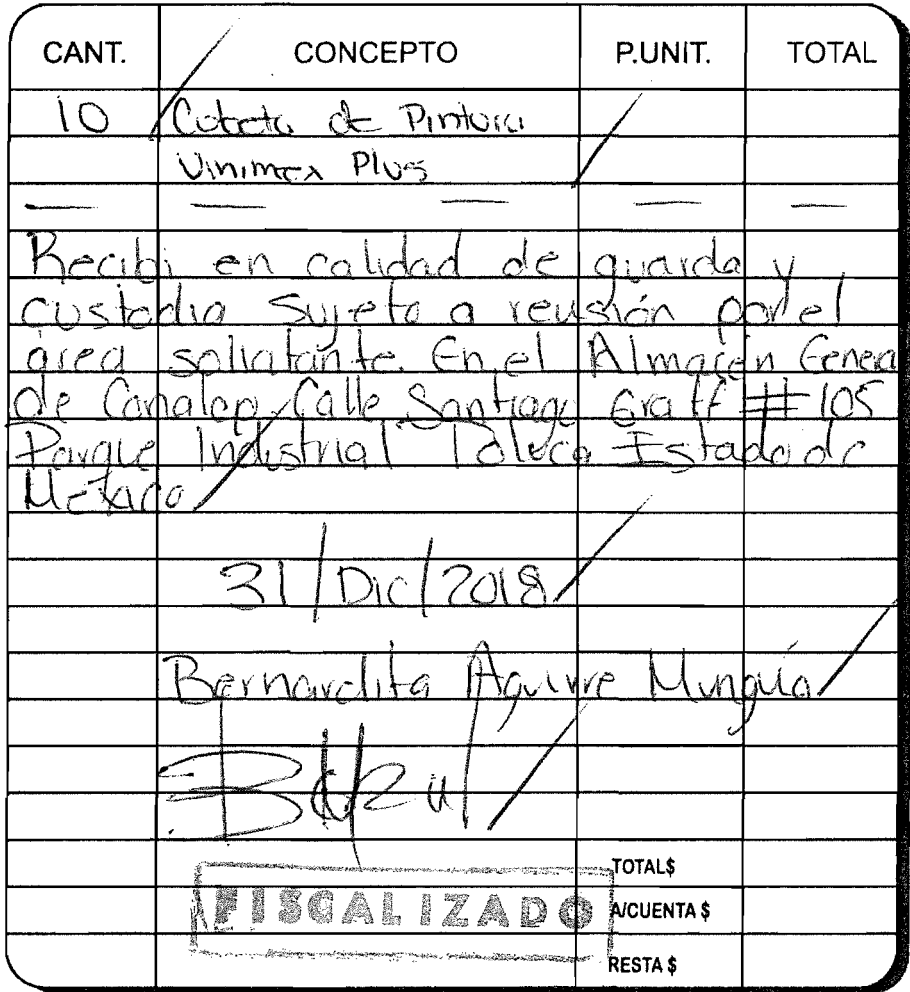 CANT. CONCEPTO P.UNIT. TOTAL
10 Cubeta de Pintura
Vinimex Plus
Recibi en calidad de guarda y
custodia sujeto a revisión por el
área solicitante. En el Almacén Genera
de Conalep Calle Santiago Graff #105
Parque Industrial Toluca Estado de
México
31/Dic/2018
Bernardita Aguirre Munguía
TOTAL$
FISCALIZADO A/CUENTA $
RESTA $